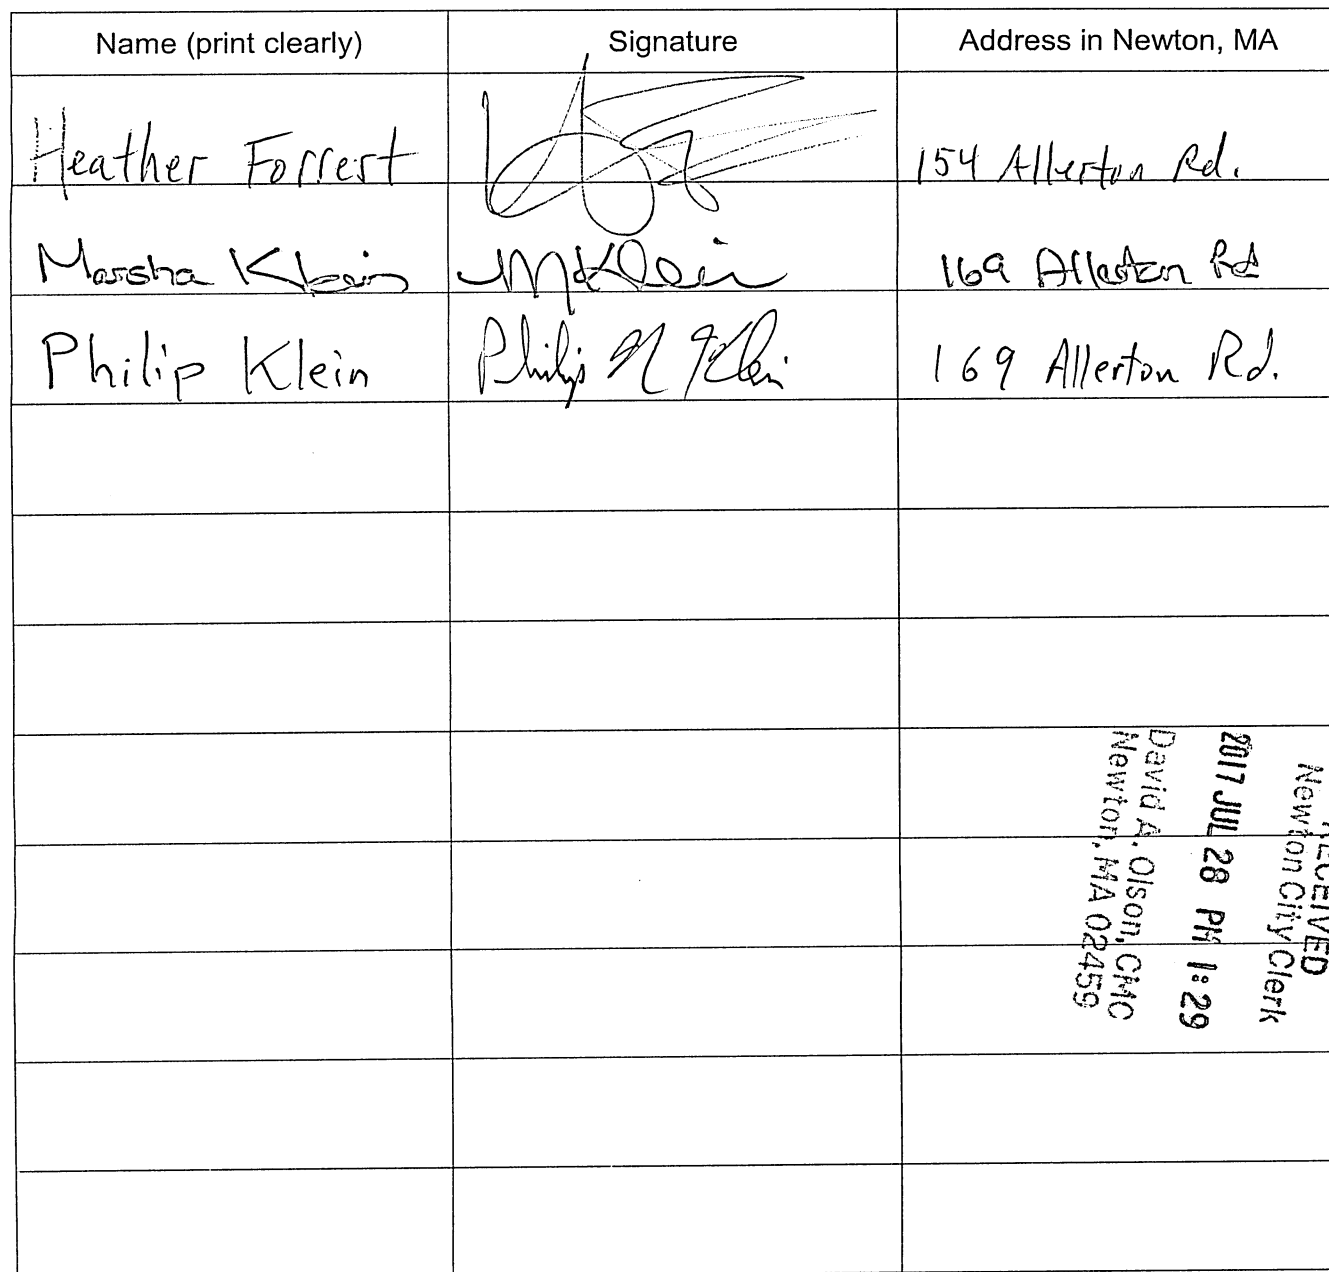 Name (print clearly) Signature Address in Newton, MA
Heather Forrest 154 Allerton Rd.
Marsha Klein MKlein 169 Allerton Rd
Philip Klein Philip N Klein 169 Allerton Rd.
RECEIVED
Newton City Clerk
2017 JUL 28 PM 1:29
David A. Olson, CMC
Newton, MA 02459